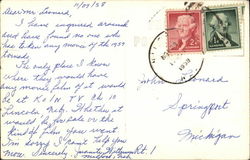 11/22/58
Dear Mr. Leonard,
I have inquired around
here have found no one who
has taken any movies of the 1957
tornado.
The only place I know
where they would have
any movie film of it would
be at K.O.L.N. T.V. ch 10 in
Lincoln, Neb. Whether it
would be for sale or the
kind of film you want
I'm sorry I can't help you
more. Sincerely,
Milford, Neb.
John Leonard
Springport
Michigan
2¢